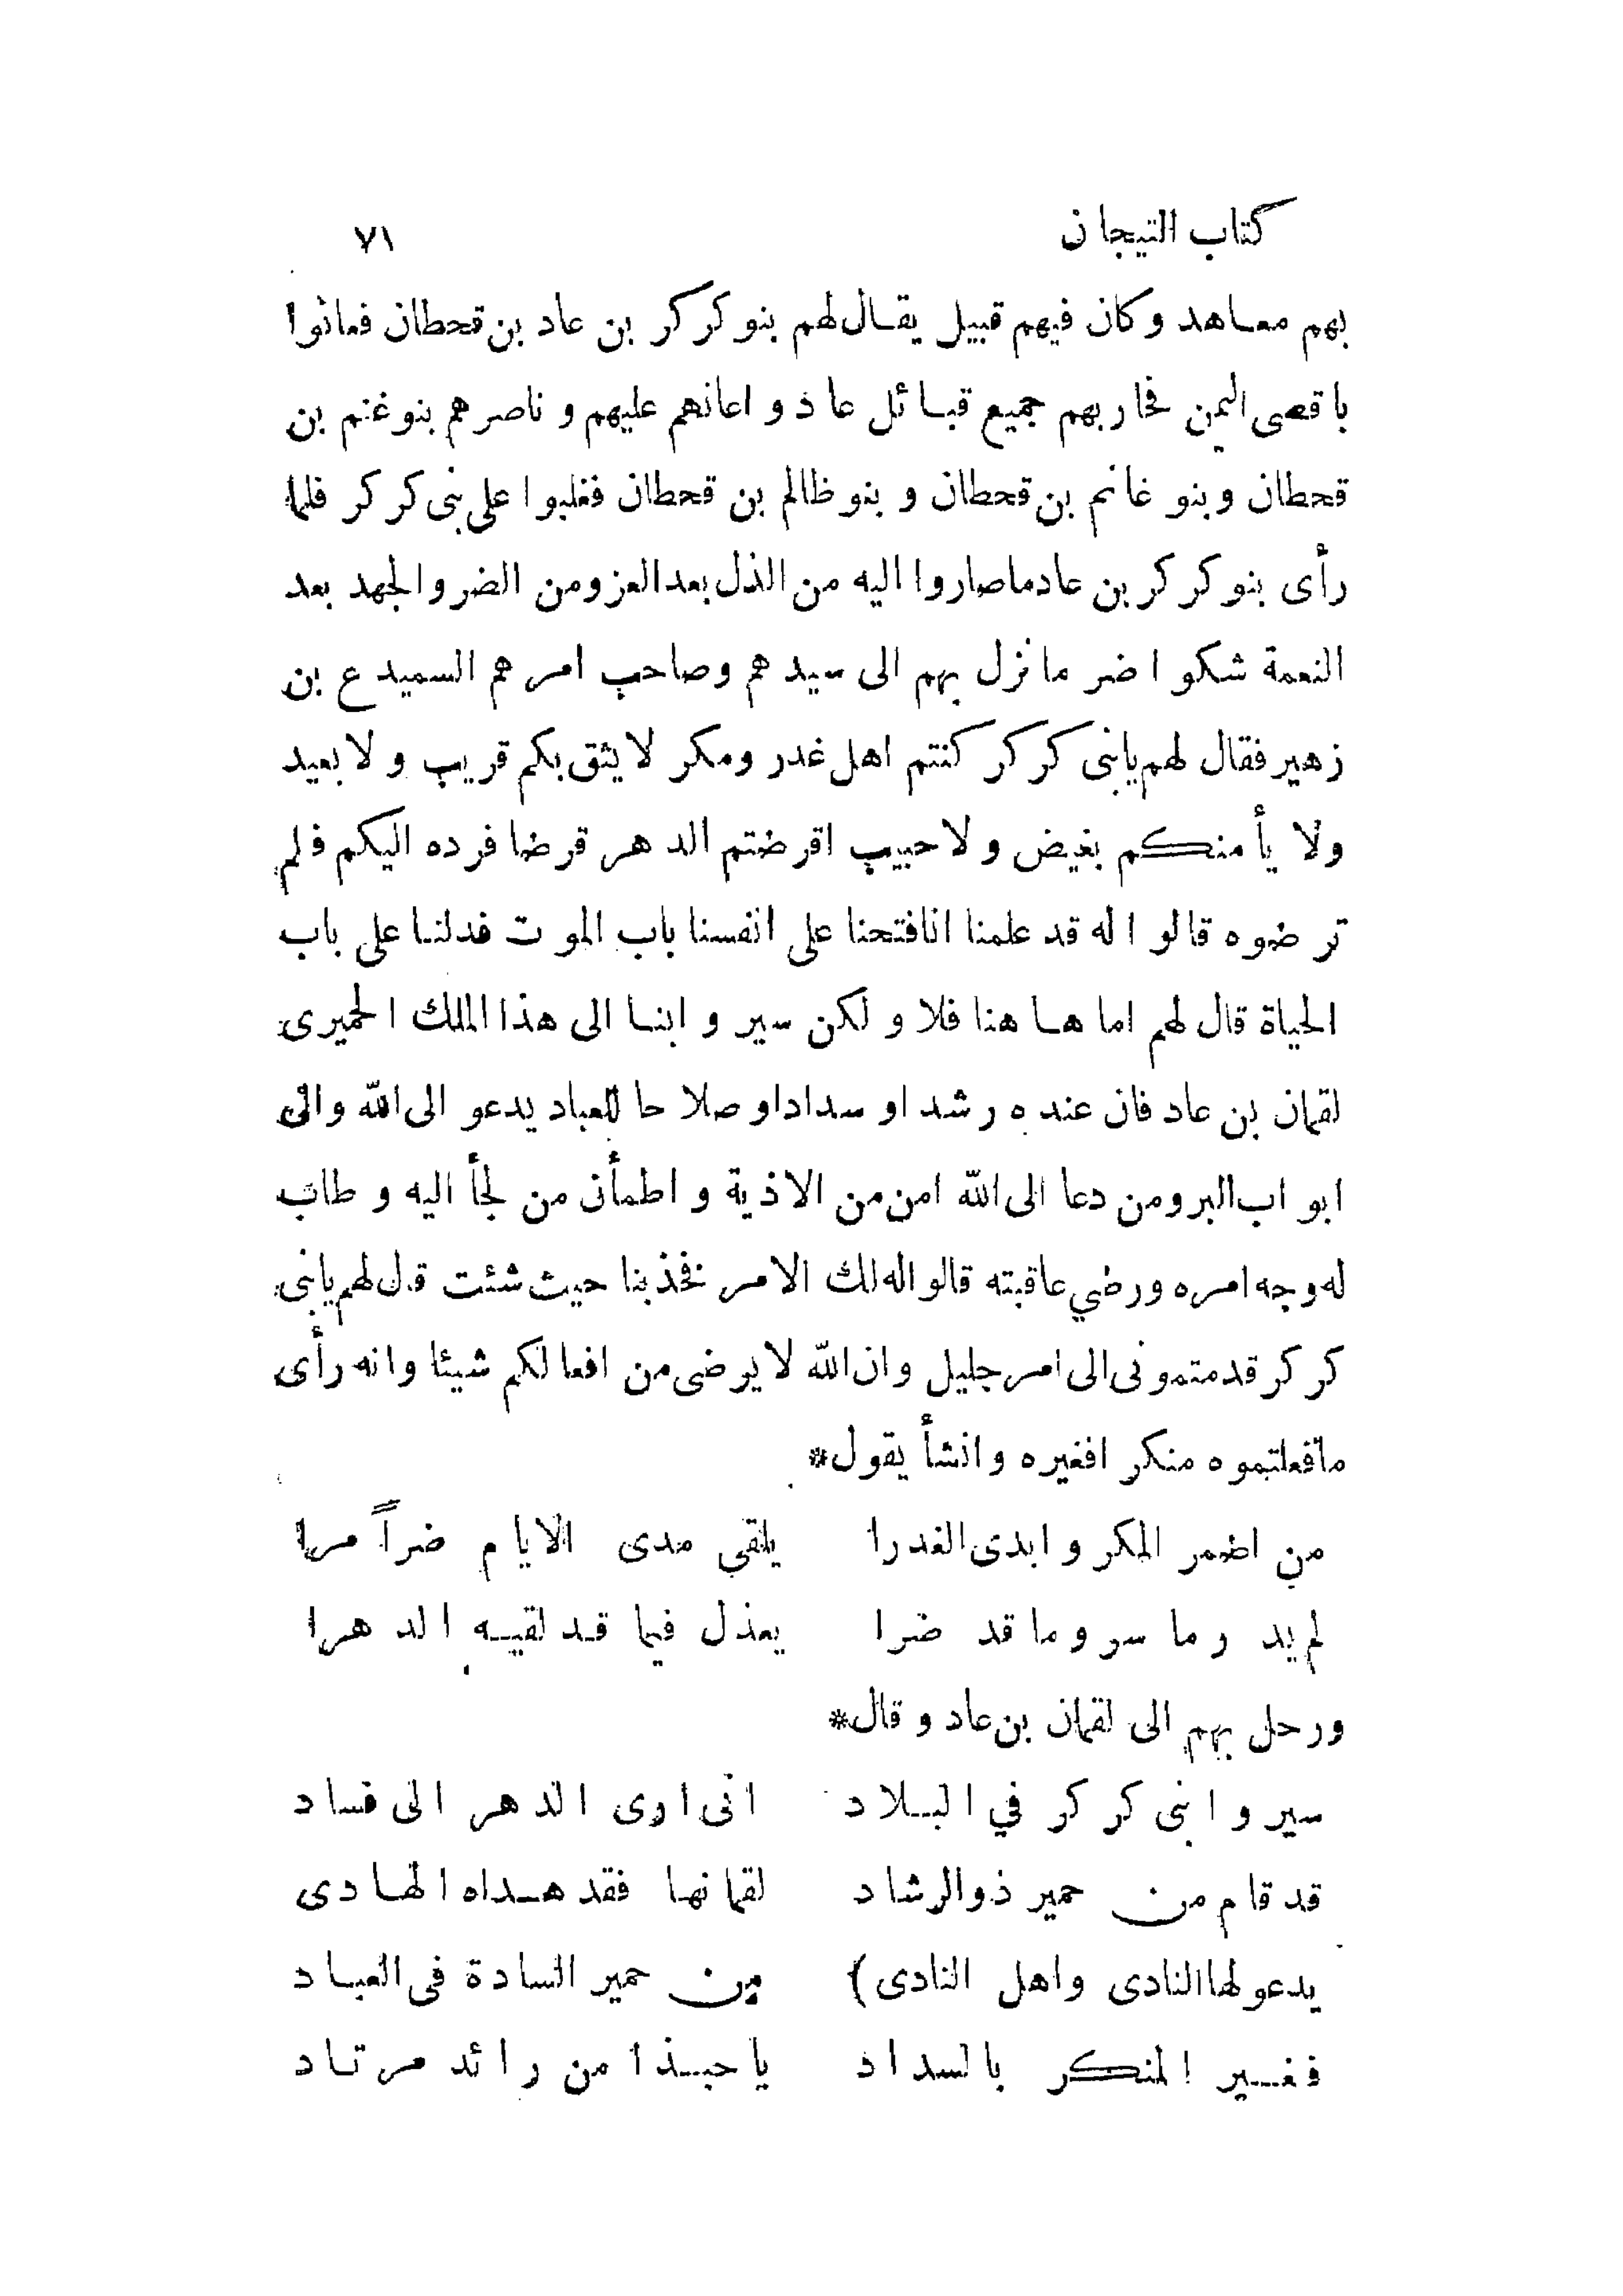 كتاب التيجان ٧١
بهم معاهد وكان فيهم قبيل يقال لهم بنو كركر بن عاد بن قحطان فعاثوا
باقصى اليمن فحاربهم جميع قبائل عاد و اعانهم عليهم و ناصرهم بنو غنم بن
قحطان وبنو غانم بن قحطان و بنو ظالم بن قحطان فغلبوا على بنى كركر فلما
رأى بنو كركر بن عاد ما صاروا اليه من الذل بعد العز ومن الضر والجهد بعد
النعمة شكوا ضر ما نزل بهم الى سيدهم وصاحب امرهم السميدع بن
زهير فقال لهم يابنى كركر كنتم اهل غدر ومكر لا يثق بكم قريب و لا بعيد
ولا يأمنكم بغيض و لا حبيب اقرضتم الدهر قرضا فرده اليكم فلم
ترضوه قالوا له قد علمنا انا فتحنا على انفسنا باب الموت فدلنا على باب
الحياة قال لهم اما ها هنا فلا و لكن سيروا بنا الى هذا الملك الحميرى
لقمان بن عاد فان عنده رشدا و سدادا و صلاحا للعباد يدعو الى الله والى
ابواب البر ومن دعا الى الله امن من الاذية و اطمأن من لجأ اليه و طاب
له وجه امره ورضي عاقبته قالوا له لك الامر نخذ بنا حيث شئت قال لهم يابنى
كركر قد متمونى الى امر جليل وان الله لا يرضى من افعالكم شيئا وانه رأى
ما فعلتموه منكرا فغيره وانشأ يقول*
من اضمر المكر و ابدى الغدرا يلقى مدى الايام ضراً مرا
لم يدر ما سر وما قد ضرا يعذل فيما قد لقيه الدهرا
ورحل بهم الى لقمان بن عاد و قال*
سيروا بنى كركر في البلاد انى ارى الدهر الى فساد
قد قام من حمير ذو الرشاد لقمانها فقد هداه الهادى
يدعو لها النادى واهل النادى) من حمير السادة فى العباد
فغير المنكر بالسداد يا حبذا من رائد مرتاد